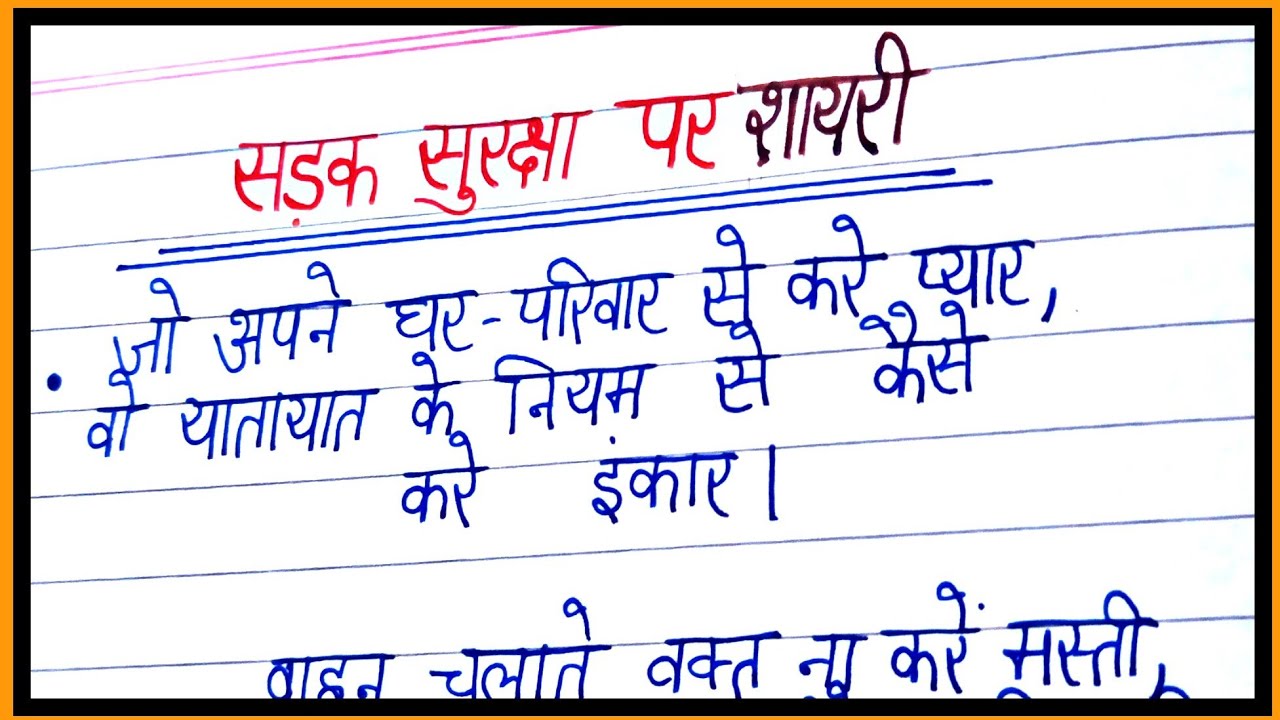 सड़क सुरक्षा पर शायरी
जो अपने घर-परिवार से करे प्यार,
वो यातायात के नियम से कैसे
करे इंकार।
वाहन चलाते वक्त न करें मस्ती,